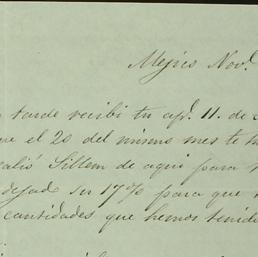 Mejico Nov.
tarde recibi tu ap. 11. de
que el 20 del mismo mes te
salió Sillem de aqui para
dejado su 17% para que
cantidades que hemos tenido